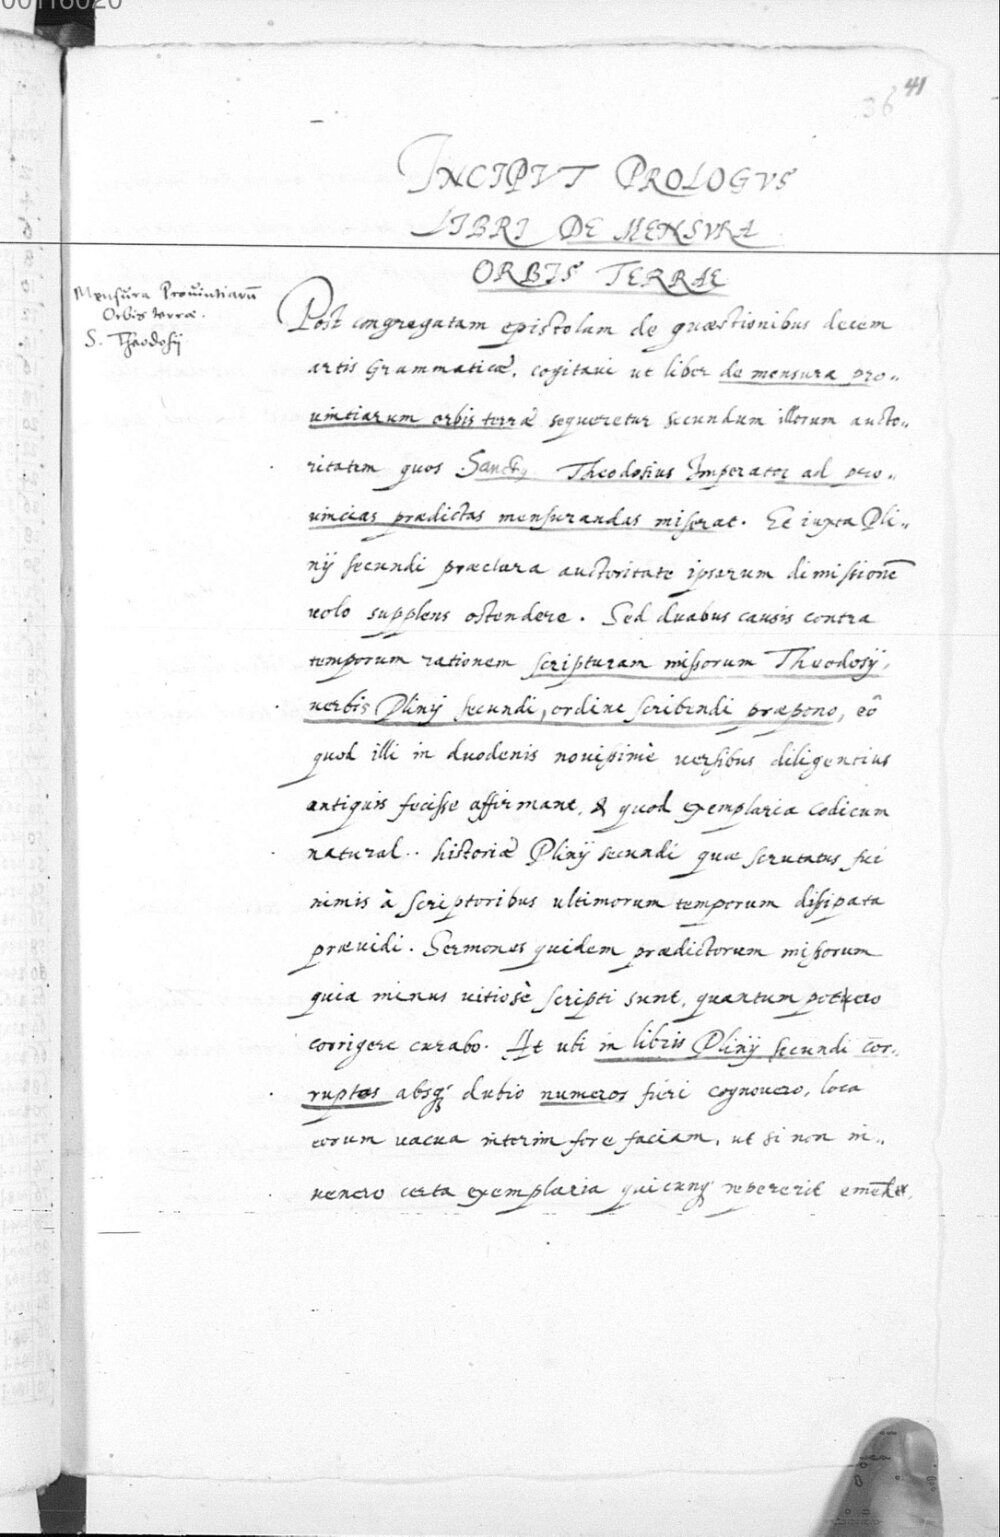 00116020
36 41
INCIPIVT PROLOGVS
LIBRI DE MENSVRA
ORBIS TERRAE
Mensura Prouintiarū
Orbis terræ.
S. Theodosij
Post congregatam epistolam de quæstionibus decem
artis Grammaticæ, cogitaui ut liber de mensura pro„
uintiarum orbis terræ sequeretur secundum illorum aucto„
ritatem quos Sanctꝰ Theodosius Imperator ad pro„
uincias prædictas mensurandas miserat. Et iuxta Pli„
nij secundi præclara auctoritate ipsarum dimissionē
uolo supplens ostendere. Sed duabus causis contra
temporum rationem scripturam missorum Theodosij,
uerbis Plinij secundi, ordine scribendi præpono, eô
quod illi in duodenis nouissimè uersibus diligentius
antiquis fecisse affirmant, & quod exemplaria codicum
natural.. historiæ Plinij secundi quæ scrutatus fui
nimis à scriptoribus ultimorum temporum dissipata
præuidi. Sermones quidem prædictorum missorum
quia minus uitiosè scripti sunt, quantum potuero
corrigere curabo. At ubi in libris Plinij secundi cor„
ruptos absq; dubio numeros fieri cognouero, loca
eorum uacua interim fore faciam, ut si non in„
uenero certa exemplaria quicunq; repererit emēdet.